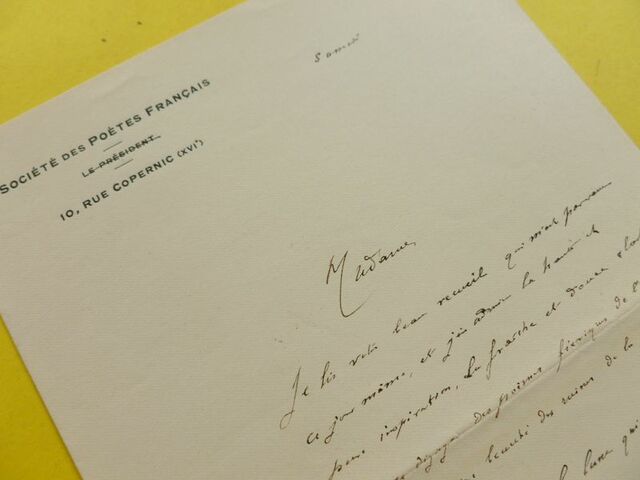 SOCIÉTÉ DES POÈTES FRANÇAIS
LE PRÉSIDENT
10, RUE COPERNIC (XVIᵉ)
Samedi
Madame,
Je lis votre beau recueil qui m'est parvenu
ce jour même, et j'en admire la
pure inspiration, la fraîche et douce
des poèmes féeriques de
beauté des ruines de la
la lune qui